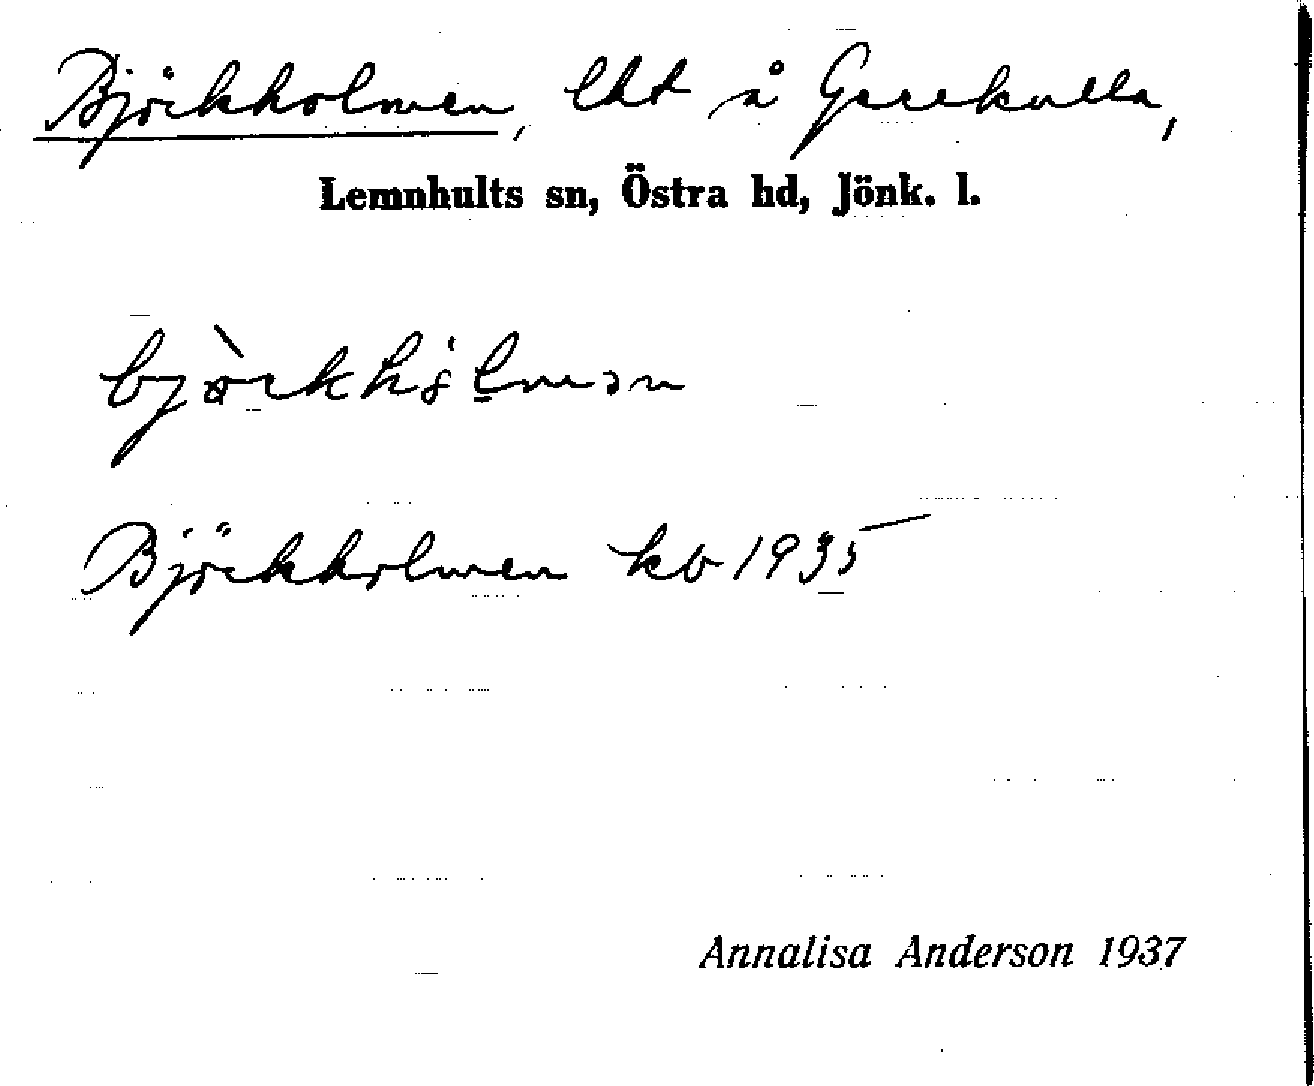 Björkholmen, lht å Gerekulla,
Lemnhults sn, Östra hd, Jönk. l.
Björkholmen kb 1935
Annalisa Anderson 1937